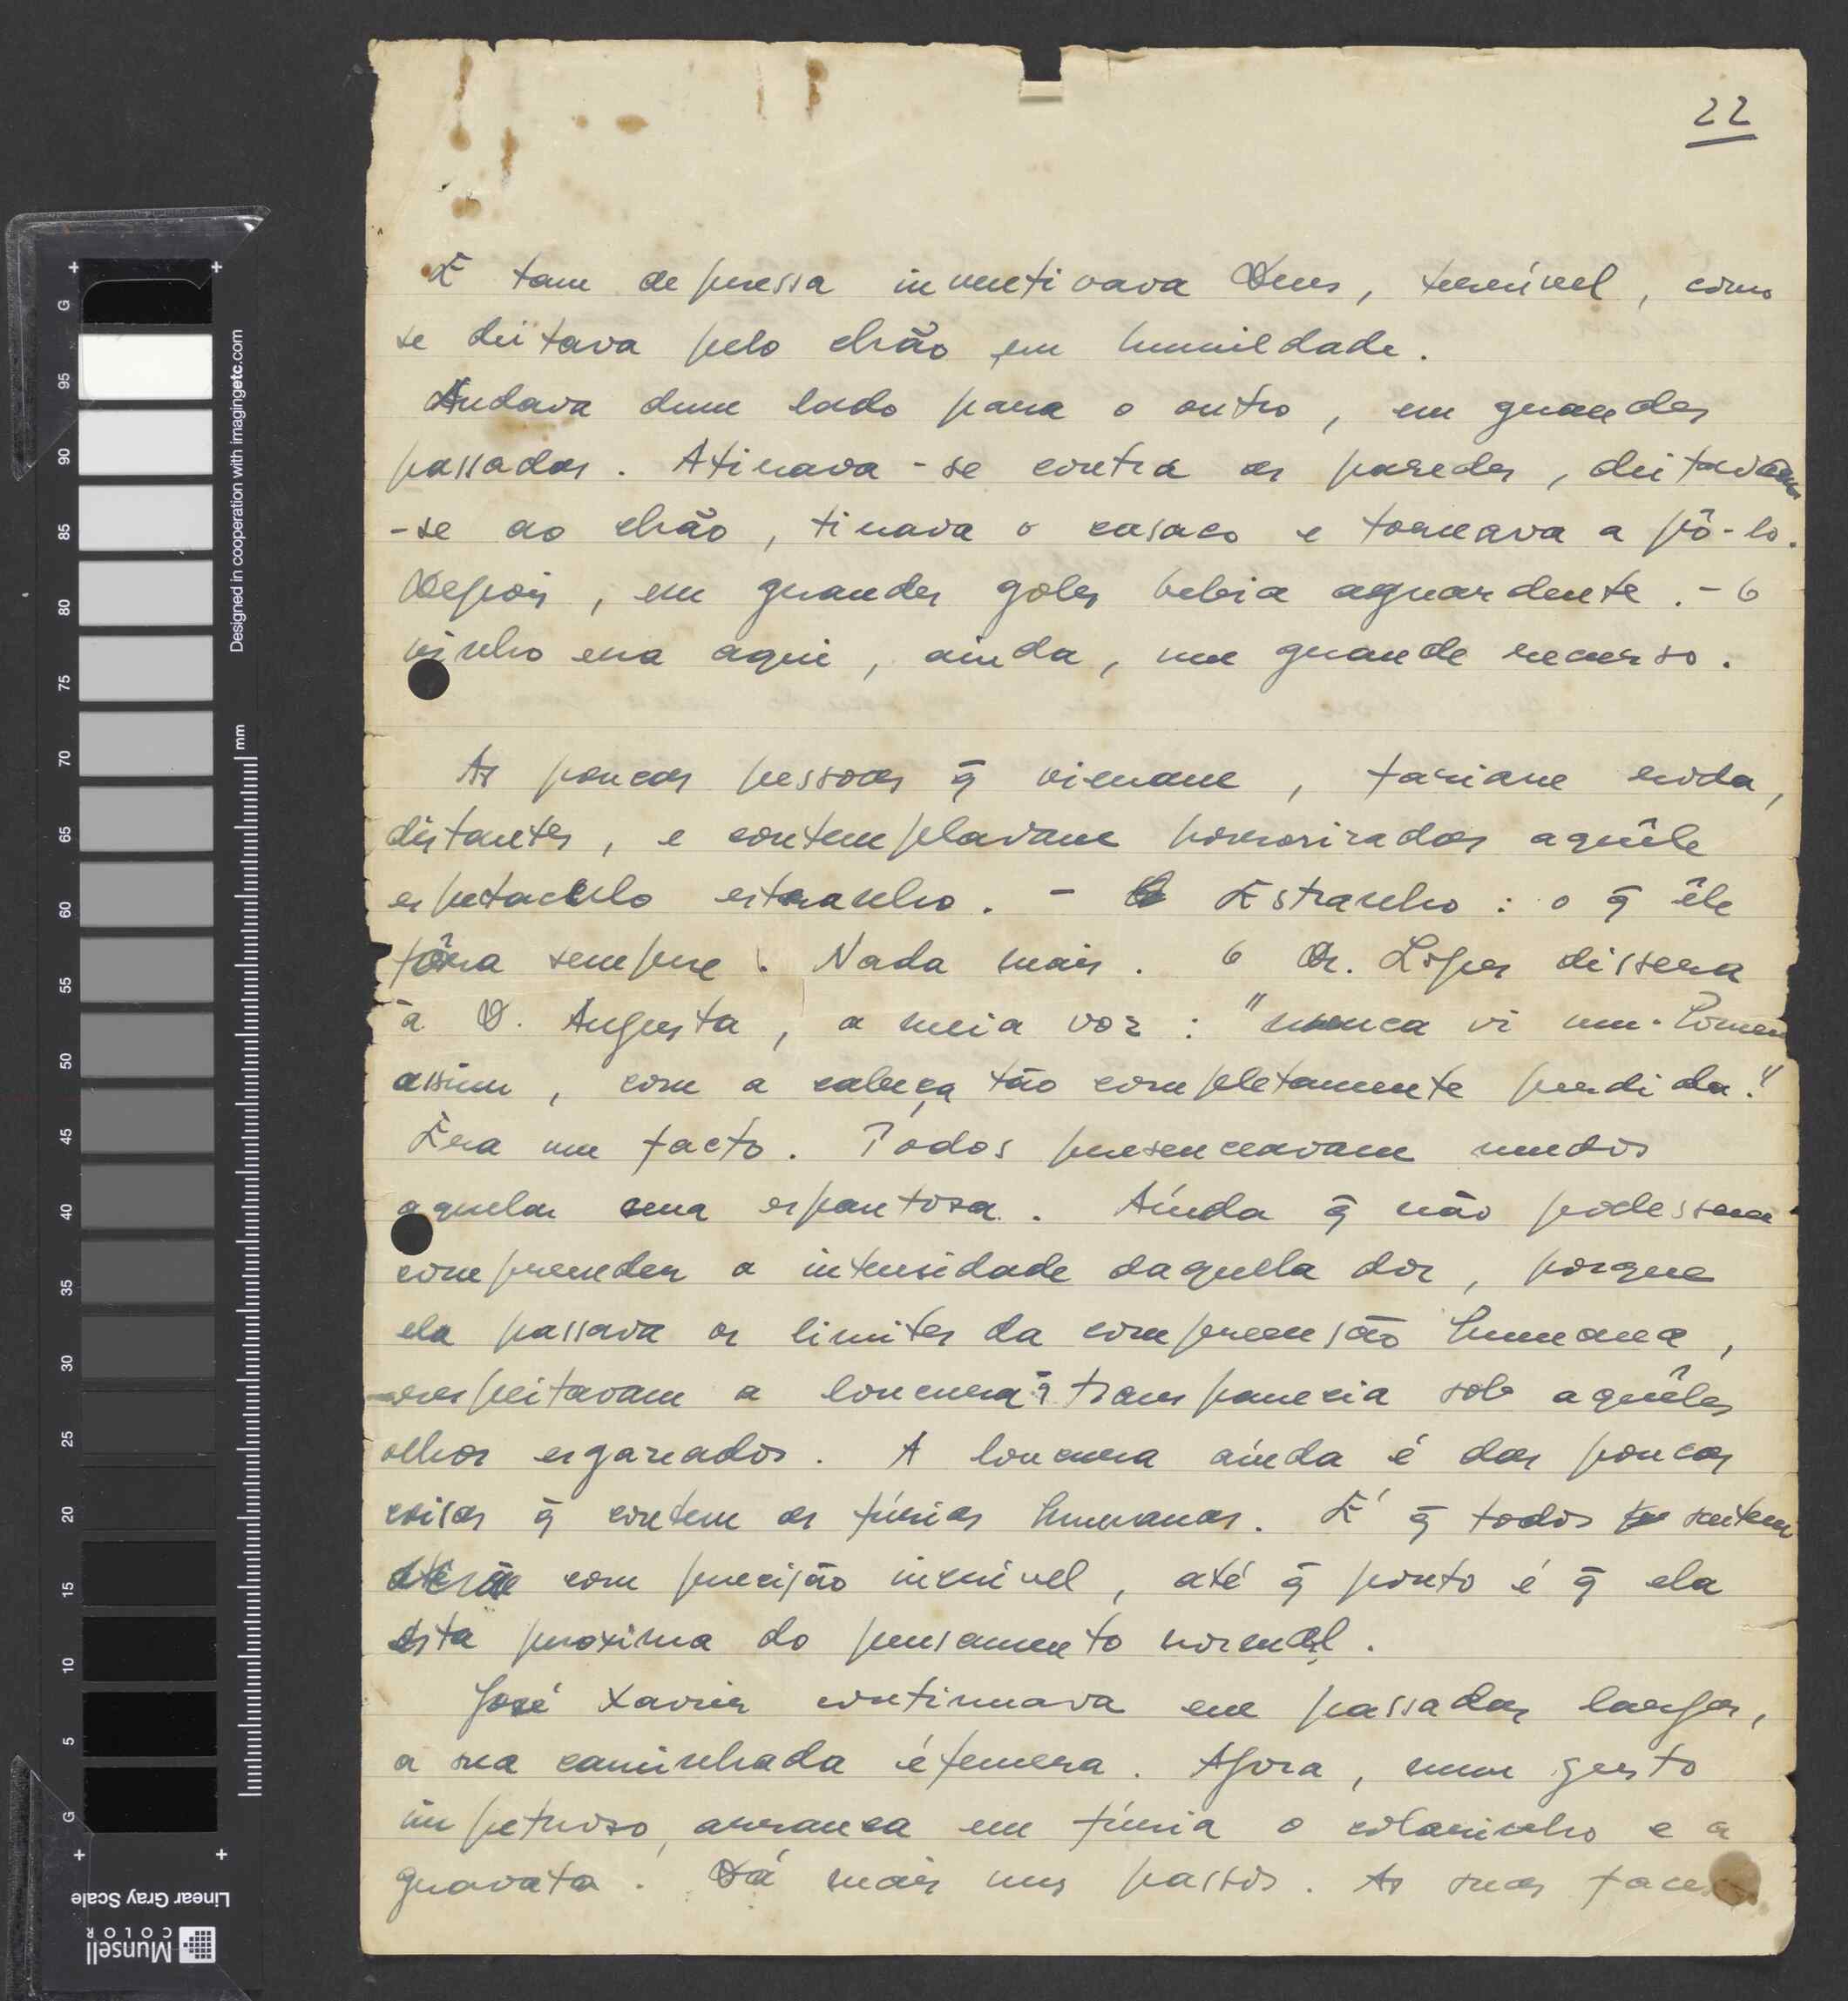 22
E tam depressa invectivava Deus, terrível, como
se deitava pelo chão em humildade.
Andava dum lado para o outro, em grandes
passadas. Atirava-se contra as paredes, deitava
-se ao chão, tirava o casaco e tornava a pô-lo.
Depois, em grandes goles bebia aguardente. - O
vinho era aqui, ainda, um grande recurso.
As poucas pessoas q̃ vieram, faziam roda,
distantes, e contemplavam horrorizados aquêle
espetaculo estranho. - Estranho: o q̃ êle
fôra sempre. Nada mais. O Dr. Lopes dissera
à D. Augusta, a meia voz: "nunca vi um homem
assim, com a cabeça tão completamente perdida."
Era um facto. Todos presenceavam mudos
aquela cena espantosa. Aínda q̃ não podessem
compreender a intensidade daquela dor, porque
ela passava os limites da compreensão humana,
respeitavam a loucura q̃ transparecia sob aquêles
olhos esgazeados. A loucura aínda é das poucas
coisas q̃ contem as fúrias humanas. É q̃ todos sentem
com precisão incrível, até q̃ ponto é q̃ ela
esta proxima do pensamento normal.
José Xavier continuava em passadas largas,
a sua caminhada éfemera. Agora, num gesto
impetuoso, arranca em fúria o colarinho e a
gravata. Dá mais uns passos. As suas faces
Designed in cooperation with imagingetc.com
mm
G 95 90 85 80 75 70 65 60 55 50 45 40 35 30 25 20 15 10 5 G
Linear Gray Scale
Munsell
COLOR